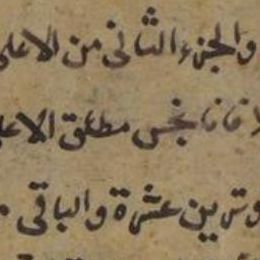 والجزء الثانى من الاعلى
فانا نجس مطلق الاعلى
وترين عشرة والباقى